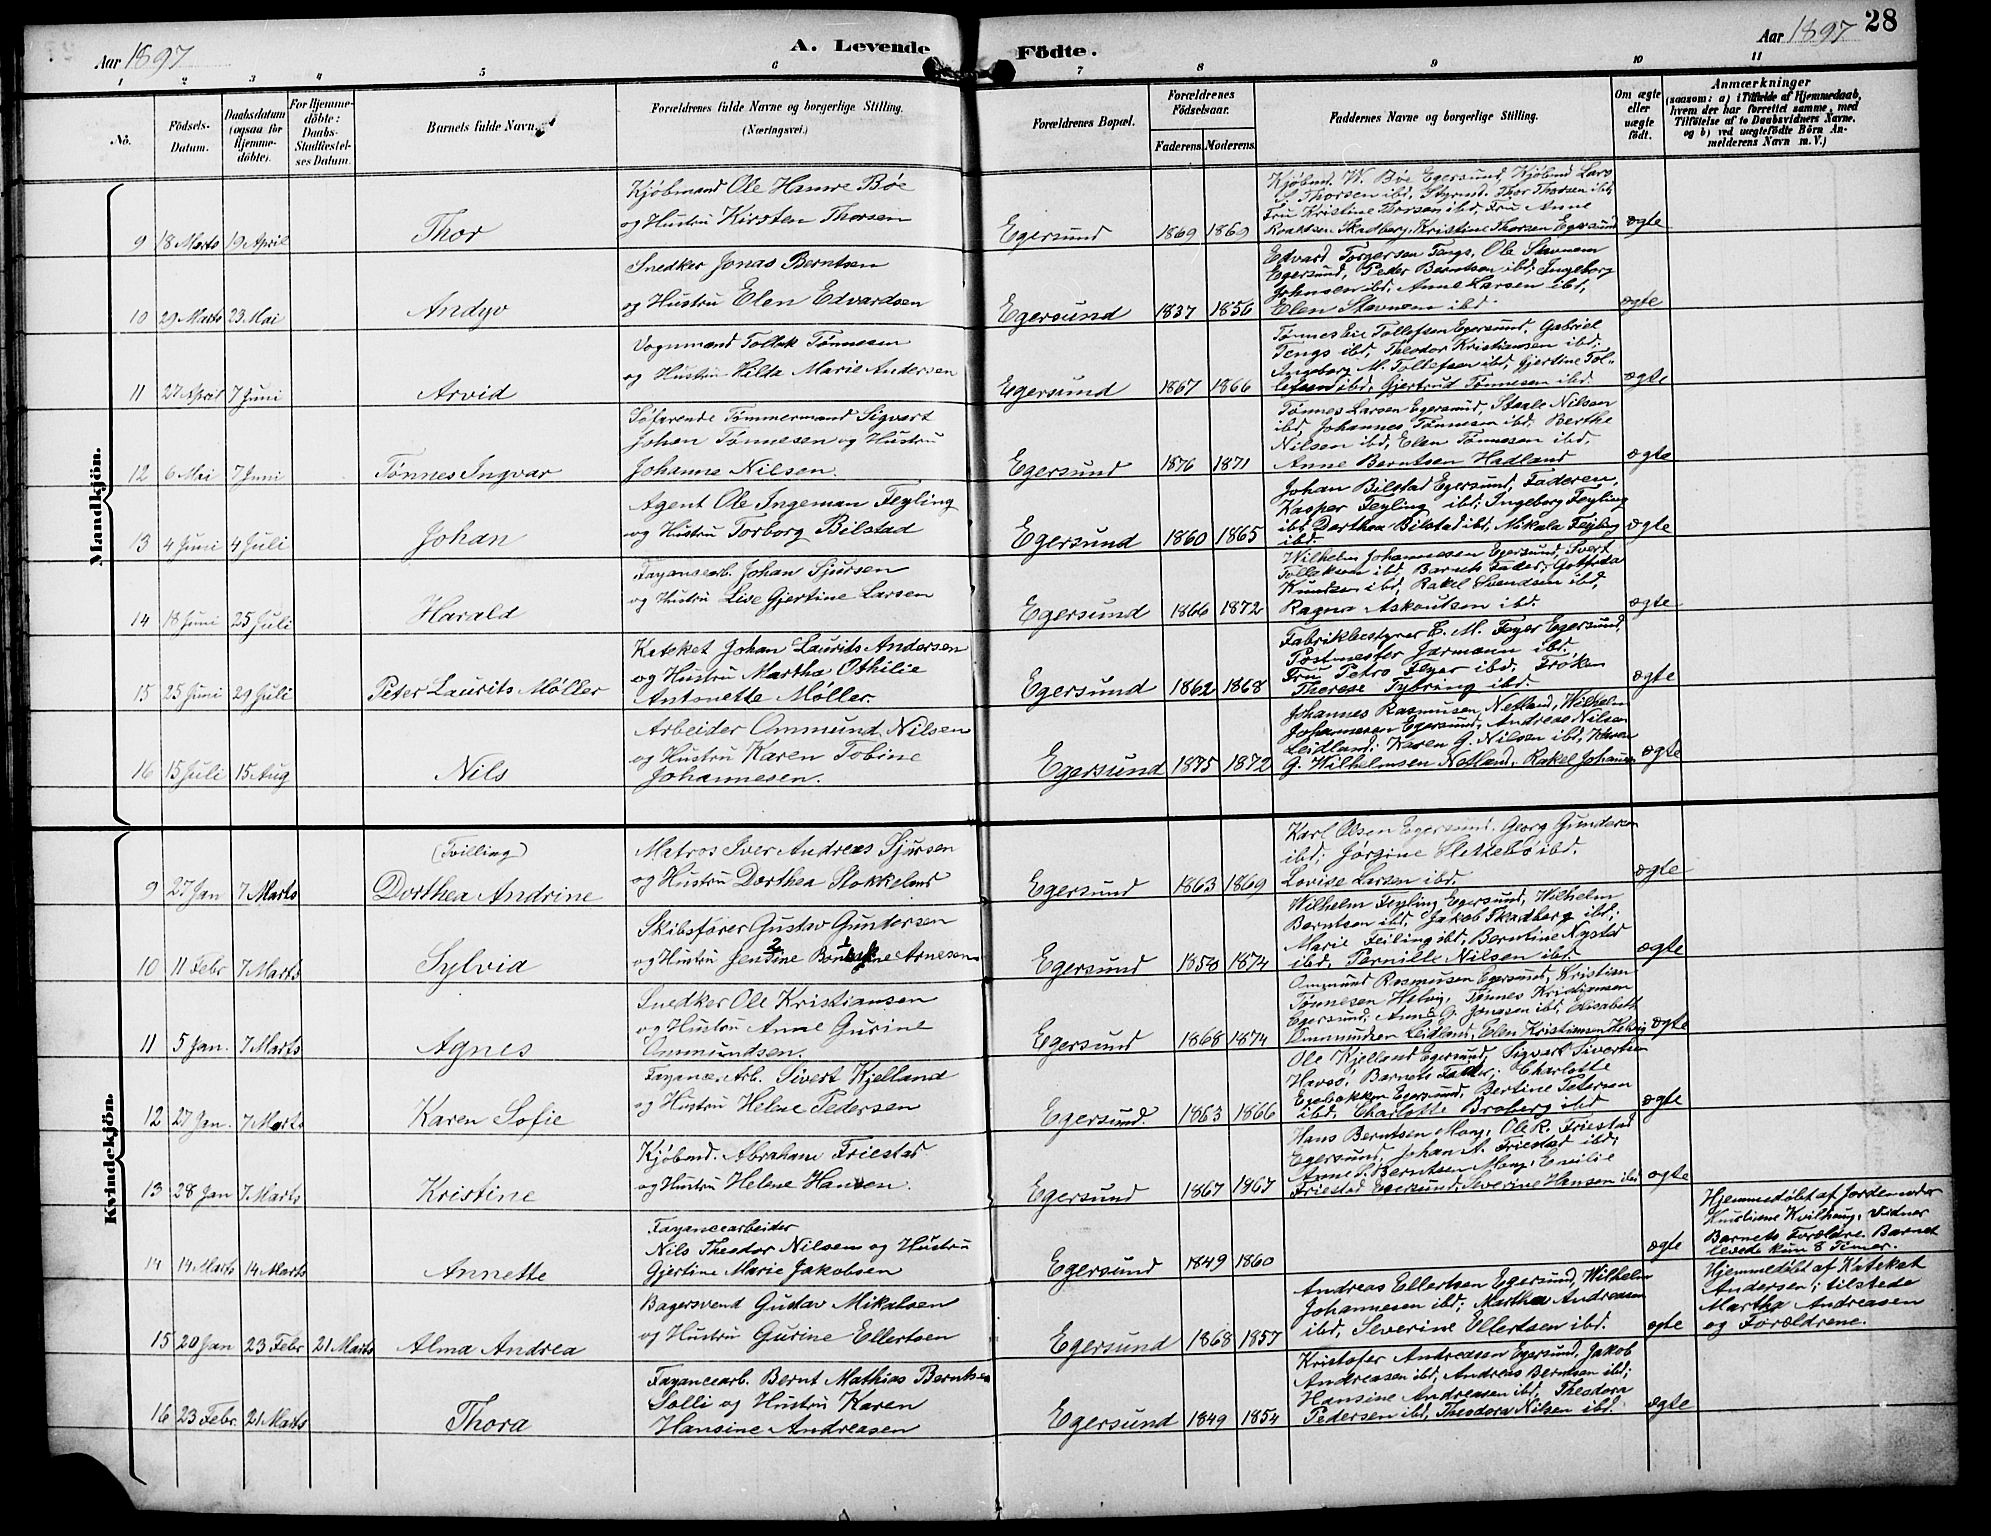 28
Aar 1897
A. Levende Födte.
Aar 1897
1 2 3 4 5 6 7 8 9 10 11
No.
Födsels-Datum.
Daabsdatum (ogsaa for Hjemme-döbte).
For Hjemme-döbte: Daabs-Stadfæstel-ses Datum.
Barnets fulde Navn.
Forældrenes fulde Navne og borgerlige Stilling. (Næringsvei.)
Forældrenes Bopæl.
Forældrenes Födselsaar.
Faderens. Moderens.
Faddernes Navne og borgerlige Stilling.
Om ægte eller uægte födt.
Anmærkninger
(saasom: a) i Tilfælde af Hjemmedaab, hvem der har forrettet samme, med Tilföielse af to Daabsvidners Navne. og b) ved uægtefödte Börn Anmelderens Navn m. V.)
Mandkjön.
Kjøbmand Ole Hanve Bøe
og Hustru Kirsten Thorsen
9 18 Marts 19 April Thor Egersund 1869 1869
Kjøbmd. W. Bøe Egersund, Kjøbmd Lars
S. Thorsen ibd, Styrmd. Thor Thorsen ibd,
Fru Kristine Thorsen ibd, Fru Anne
Knudsen Skadberg, Kristine Thorsen Egersund ægte
Snedker Jonas Berntsen
og Hustru Elen Edvardsen
10 29 Marts 23 Mai Andyv Egersund 1837 1856
Edvard Torgersen Tengs, Ole Stavnem
Egersund, Peder Berntsen ibd; Ingeborg
Johnsen ibd, Anne Larsen ibd,
Elen Stavnem ibd ægte
Vognmand Tollak Tønnesen
og Hustru Hilda Marie Andersen
11 27 April 7 Juni Arvid Egersund 1867 1866
Tønnes Tollefsen Egersund, Gabriel
Tengs ibd, Theodor Kristiansen ibd,
Ingeborg M. Tollefsen ibd, Gjertine Tol-
lefsen ibd, Gjertrud Tønnesen ibd. ægte
Søfarende Tømmermand Sigvart
Johan Tønnesen og Hustru
Johanne Nilsen.
12 6 Mai 7 Juni Tønnes Ingvar Egersund 1876 1871
Tønnes Larsen Egersund, Staale Nilsen
ibd, Johannes Tønnesen ibd, Berthe
Nilsen ibd, Elen Tønnesen ibd,
Anne Berntsen Hadland ægte
Agent Ole Ingeman Feyling
og Hustru Torborg Bilstad
13 4 Juni 4 Juli Johan Egersund 1860 1865
Johan Bilstad Egersund, Faderen,
Kasper Feyling ibd; Ingeborg Feyling
ibd, Dorthea Bilstad ibd, Mikala Feyling
ibd. ægte
Fayancearb. Johan Sjursen
og Hustru Live Gjertine Larsen
14 18 Juni 25 Juli Harald Egersund 1866 1872
Wilhelm Johannesen Egersund, Sivert
Tollaksen ibd, Barnets Fader; Gottfrida
Knudsen ibd, Rakel Svendsen ibd,
Ragna Askoutsen ibd. ægte
Kateket Johan Laurits Andersen
og Hustru Martha Othilie
Antonette Møller.
15 25 Juni 29 Juli Peter Laurits Møller Egersund 1862 1868
Fabrikbestyrer C. M. Feyer Egersund,
Postmester Jarmann ibd.
Fru Petro Feyer ibd. Frøken
Therese Tybring ibd. ægte
Arbeider Ommund Nilsen
og Hustru Karen Tobine
Johannesen.
16 15 Juli 15 Aug Nils Egersund 1875 1872
Johannes Rasmussen Netland, Wilhelm
Johannesen Egersund, Andreas Nilsen
Leidland; Karen G. Nilsen ibd, Karen
G. Wilhelmsen Netland, Rakel Johansen ægte
Kvindekjön.
(Tvilling)
Matros Iver Andreas Sjursen
og Hustru Dorthea Stokkeland
9 27 Jan 7 Marts Dorthea Andrine Egersund 1863 1869
Karl Olsen Egersund. Georg Gundersen
ibd; Jørgine Slettebø ibd.
Lovise Larsen ibd. ægte
Skibsfører Gustav Gundersen
og Hustru Jensine Arnesen
10 11 Febr 7 Marts Sylvia Egersund 1858 1874
Wilhelm Feyling Egersund, Wilhelm
Berntsen ibd, Jakob Skadberg ibd;
Marie Feiling ibd, Berntine Nysted
ibd, Pernille Nilsen ibd. ægte
Snedker Ole Kristiansen
og Hustru Anne Gurine
Ommundsen.
11 5 Jan. 7 Marts Agnes Egersund 1868 1874
Ommund Rasmusen Egersund, Kristian
Tønnesen Helvig, Tønnes Kristiansen
Egersund; Anne G. Jonasen ibd, Elisabeth
Ommundsen Leidland, Elen Kristiansen Helvig ægte
Fayance. Arb. Sivert Kjelland
og Hustru Helene Pedersen
12 27 Jan. 7 Marts Karen Sofie Egersund. 1863 1866
Ole Kjelland Egersund, Sigvart Sivertsen
Havsø, Barnets Fader; Charlotte
Egebakken Egersund, Bertine Petersen
ibd, Charlotte Broberg ibd ægte
Kjøbmd. Abraham Friestad
og Hustru Helene Hansen.
13 28 Jan 7 Marts Kristine Egersund 1867 1867
Hans Berntsen Mong, Ole R. Friestad
Egersund, Johan A. Friestad ibd,
Anne S. Berntsen Mong, Emilie
Friestad Egersund, Severine Hansen ibd ægte
Fayancearbeider
Nils Theodor Nilsen og Hustru
Gjertine Marie Jakobsen
14 14 Marts 14 Marts Annette Egersund 1849 1860 ægte
Hjemmedøbt af Jordemoder
Kvilhaug, Vidner
Barnets Forældre. Barnet
levede kun 8 Timer.
Bagersvend Gustav Mikalsen
og Hustru Gurine Ellertsen
15 20 Jan 23 Febr 21 Marts Alma Andrea Egersund 1868 1857
Andreas Ellertsen Egersund, Wilhelm
Johannesen ibd; Martha Andreasen
ibd, Severine Ellertsen ibd. ægte
Hjemmedøbt af Kateket
Andersen; tilstede
Martha Andreasen
og Forældrene.
Fayancearb. Bernt Mathias Berntsen
Solli og Hustru Karen
Hansine Andreasen
16 23 Febr. 21 Marts Thora Egersund 1849 1854
Kristofer Andreasen Egersund, Jakob
Andreasen ibd, Andreas Berntsen ibd;
Hansine Andreasen ibd, Theodora
Pedersen ibd, Theodora Nilsen ibd. ægte